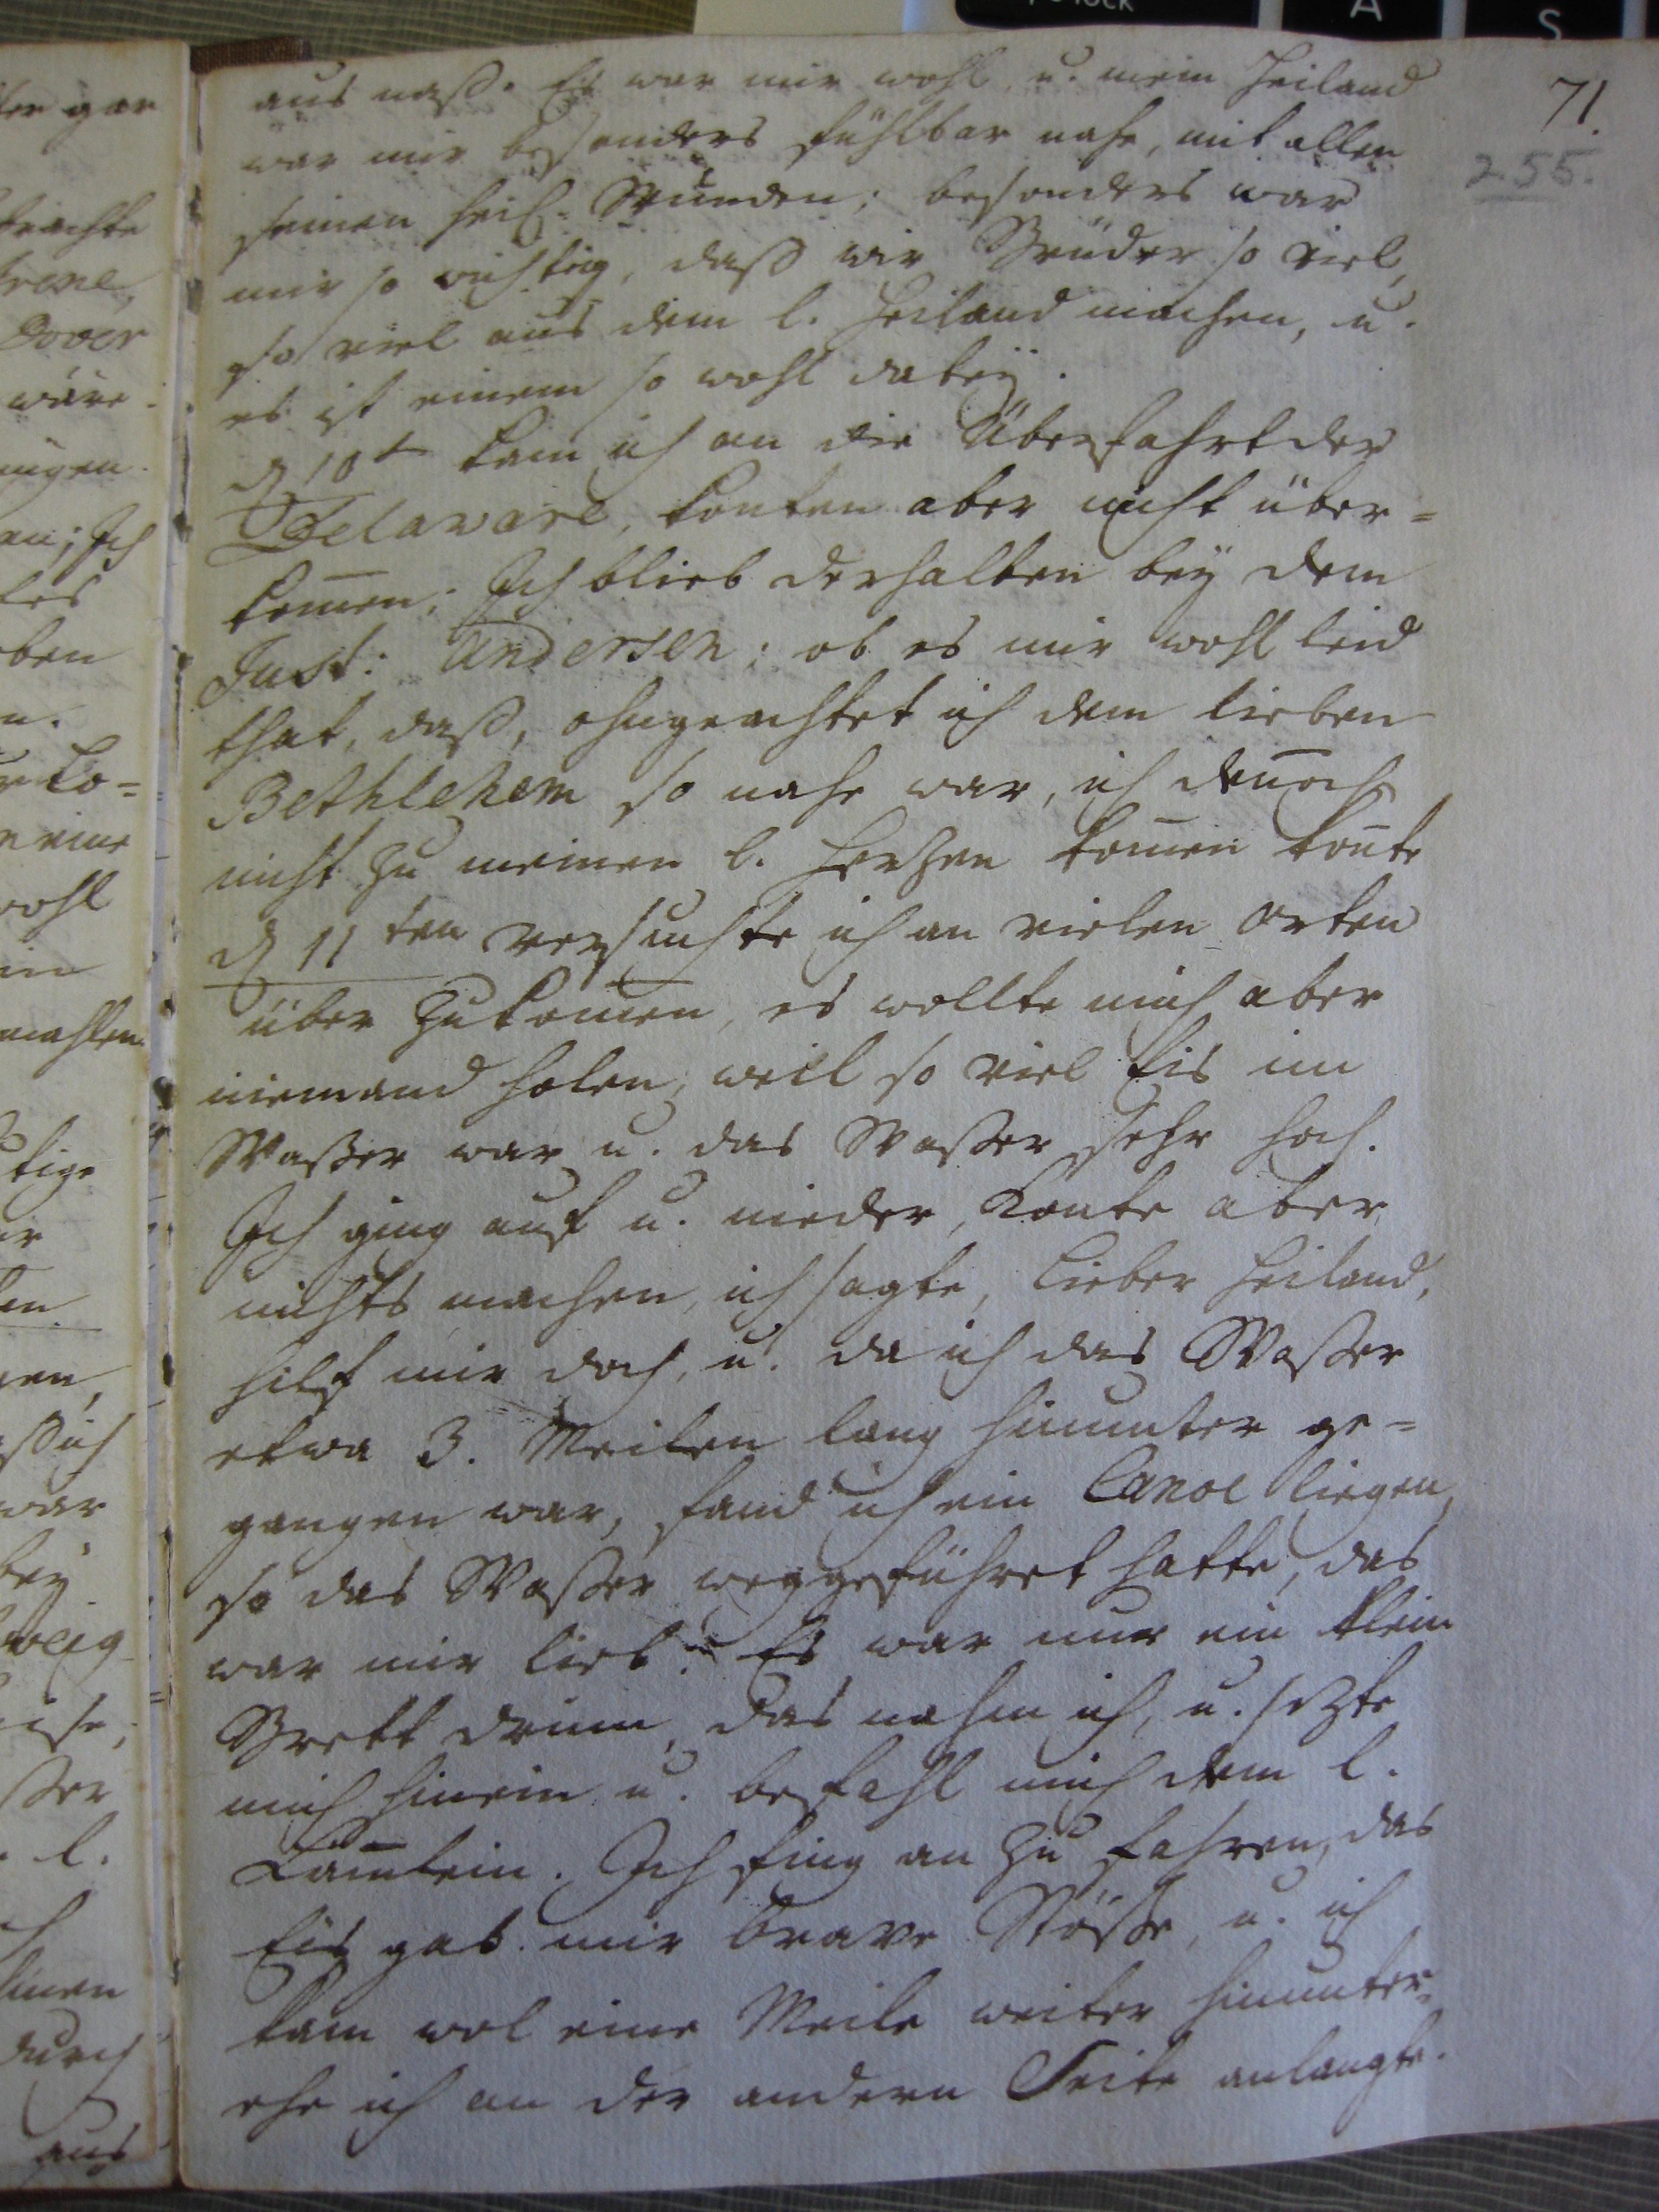 71.
255.
aus naß. Es war mir wohl, u. mein Heiland
war mir besonders fühlbar nahe, mit allen
seinen heil. Wunden; besonders war
mir so wichtig, daß wir Brüder so viel,
so viel aus dem l. Heiland machen, u.
es ist einem so wohl dabeÿ.
d 10t kam ich an die Überfahrt der
Delaware, konten aber nicht über-
kom̄en; Ich blieb derhalben beÿ dem
Just: Andersen; ob es mir wohl leid
that, daß, ohngeachtet ich dem lieben
Bethlehem so nahe war, ich den̄och
nicht zu meinen l. Herzen kom̄en kon̄te
d 11ten versuchte ich an vielen Orten
über zu kom̄en, es wollte mich aber
niemand holen, weil so viel Eis im
Waßer war u. das Waßer sehr hoch.
Ich ging auf u. nieder, konte aber
nichts machen, ich sagte, Lieber Heiland,
hilf mir doch, u. da ich das Waßer
etwa 3. Meilen lang hinunter ge-
gangen war, fand ich ein Canoe liegen,
so das Waßer weggeführet hatte, das
war mir lieb. Es war nur ein klein
Brett drinn, das nahm ich, u. sezte
mich hinein u. befahl mich dem l.
Läm̄lein. Ich fing an zu fahren, das
Eis gab mir brave Stöße, u. ich
kam wol eine Meile weiter hinunter,
ehe ich an der andern Seite anlangte.